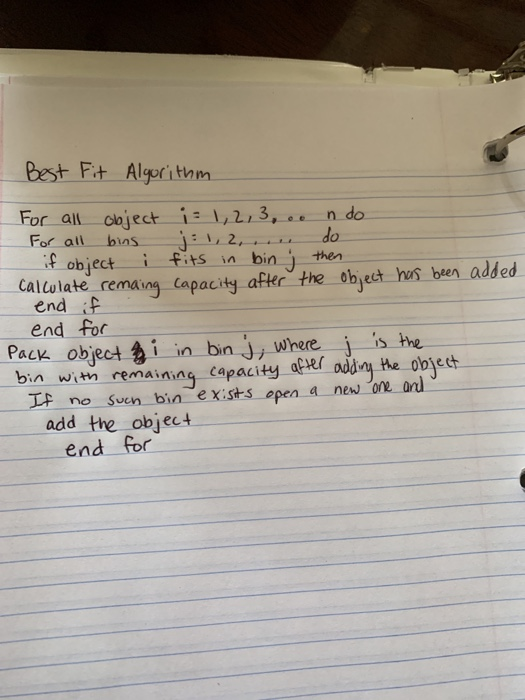 Best Fit Algorithm
For all object i = 1, 2, 3, ... n do
For all bins j = 1, 2, ..... do
if object i fits in bin j then
Calculate remaing capacity after the object has been added
end if
end for
Pack object i in bin j, where j is the
bin with remaining capacity after adding the object
If no such bin exists open a new one and
add the object
end for